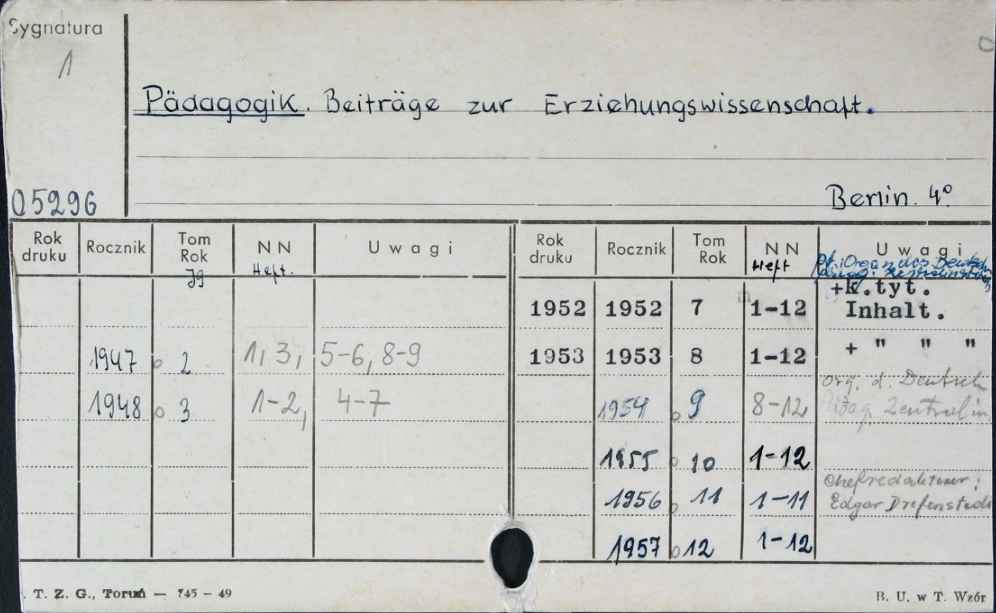 Sygnatura
1
Pädagogik. Beiträge zur Erziehungswissenschaft.
05296
Berlin. 4°
Rok druku Rocznik Tom Rok NN Uwagi Rok druku Rocznik Tom Rok NN Uwagi
Jg Heft. Heft
+k.tyt.
1952 1952 7 1-12 Inhalt.
1947 2 1, 3, 5-6, 8-9 1953 1953 8 1-12 + " " "
org. d. Deutsch
1948 3 1-2, 4-7 1954 9 8-12 Pädag. Zentralin
1955 10 1-12
Chefredakteur:
1956 11 1-11 Edgar Drefenstedt
1957 12 1-12
. T. Z. G., Toruń — 745 — 49
B. U. w T. Wzór